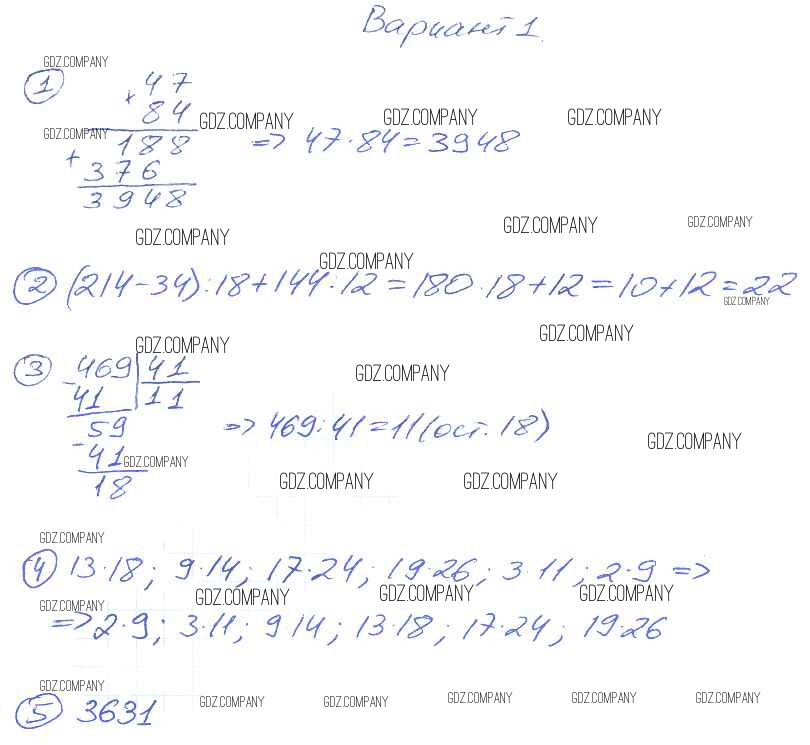 Вариант 1.
GDZ.COMPANY
① 47
× 84
GDZ.COMPANY GDZ.COMPANY GDZ.COMPANY
GDZ.COMPANY 188 => 47·84=3948
+ 376
3948
GDZ.COMPANY GDZ.COMPANY GDZ.COMPANY
GDZ.COMPANY
② (214-34):18+144:12=180·18+12=10+12=22
GDZ.COMPANY
GDZ.COMPANY GDZ.COMPANY
③ -469|41
41 11
GDZ.COMPANY
59 => 469:41=11(ост.18)
-41 GDZ.COMPANY GDZ.COMPANY
18 GDZ.COMPANY GDZ.COMPANY
GDZ.COMPANY
④ 13·18; 9·14; 17·24; 19·26; 3·11; 2·9 =>
GDZ.COMPANY GDZ.COMPANY GDZ.COMPANY GDZ.COMPANY
=> 2·9; 3·11; 9 14; 13·18; 17·24; 19·26
GDZ.COMPANY
⑤ 3631 GDZ.COMPANY GDZ.COMPANY GDZ.COMPANY GDZ.COMPANY GDZ.COMPANY